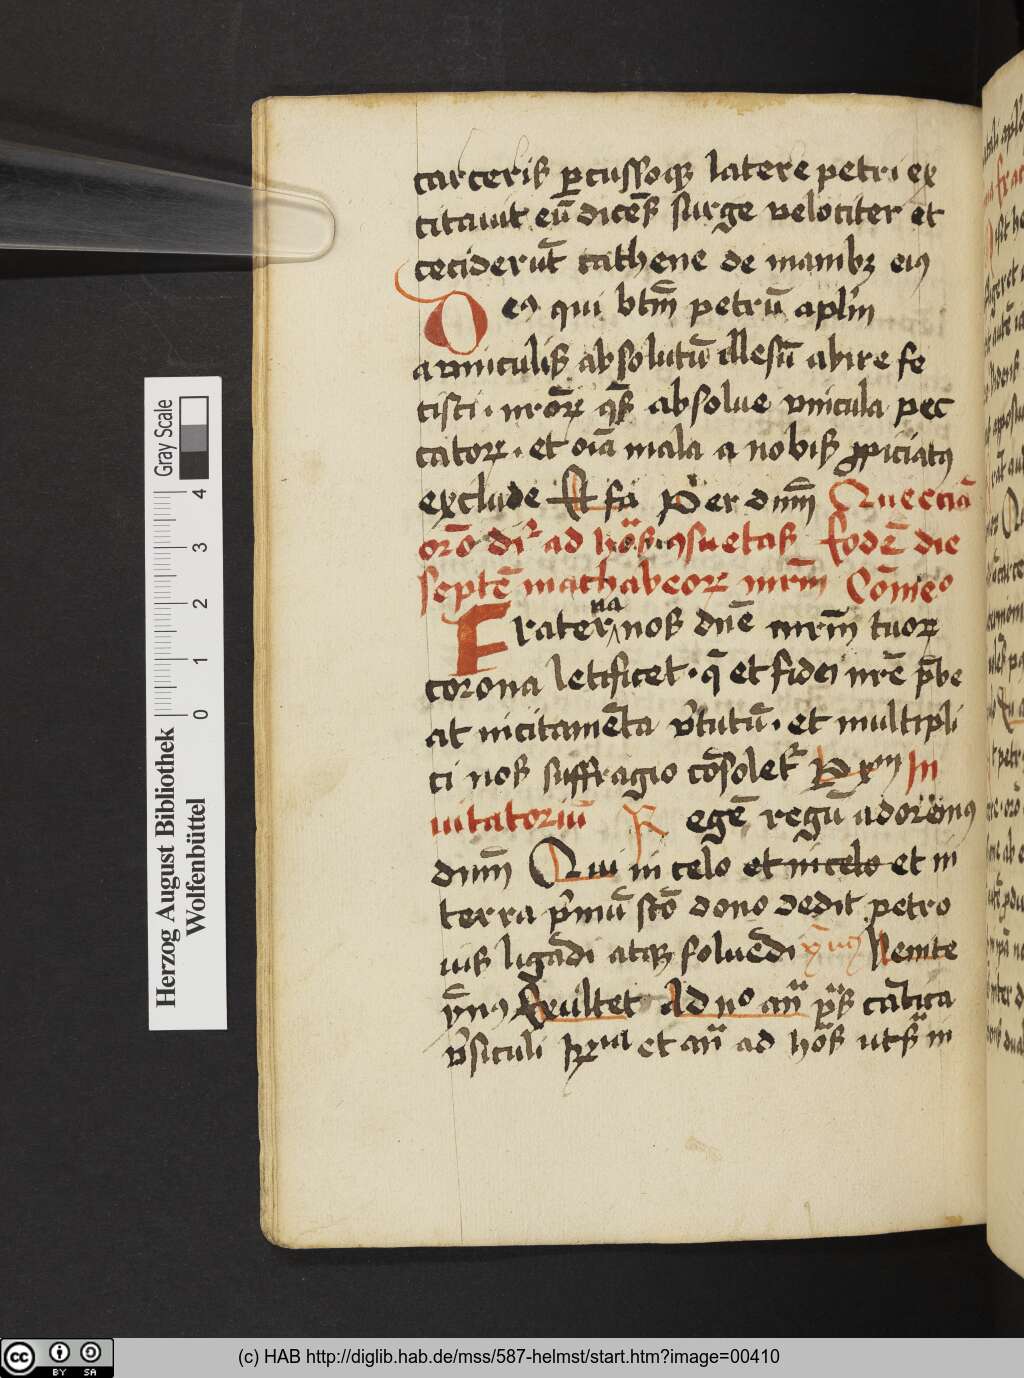 carceris ꝑcussoqꝫ latere petri ex
citauit eū dicēs surge velociter et
ceciderūt cathene de manibꝫ eiꝰ
Deꝰ qui btm̄ petrū aplm̄
a vinculis absolutū illesū abire fe
cisti · nr̄oꝝ q̄s absolue vincula pec
catoꝝ · et oīa mala a nobis ꝓpiciatꝰ
exclude Per dnm̄ Que eciā
or̄o dr̄ ad hōs ꝯsuetas Eodē die
septē machabeoꝝ mr̄m Cōmeo
Fraterna nos dn̄e mr̄m tuoꝝ
corona letificet · q̄ et fidei nr̄e p̄be
at incitamēta v̓tutū · et multipli
ci nos suffragio cōsolet᷑ In
uitatoriū Regē regū adorēmꝰ
dnm̄ Qui in celo et in celo et in
terra p̓mū sc̄o dono dedit petro
ius ligādi atqꝫ soluēdi ym̄ꝰ Uenite
ym̄ꝰ Exultet Ad no an̄ p̄s cātica
v̓siculi et an̄ ad hōs ut s̄ in
Herzog August Bibliothek
Wolfenbüttel
0 1 2 3 4
Gray Scale
cc BY SA
(c) HAB http://diglib.hab.de/mss/587-helmst/start.htm?image=00410